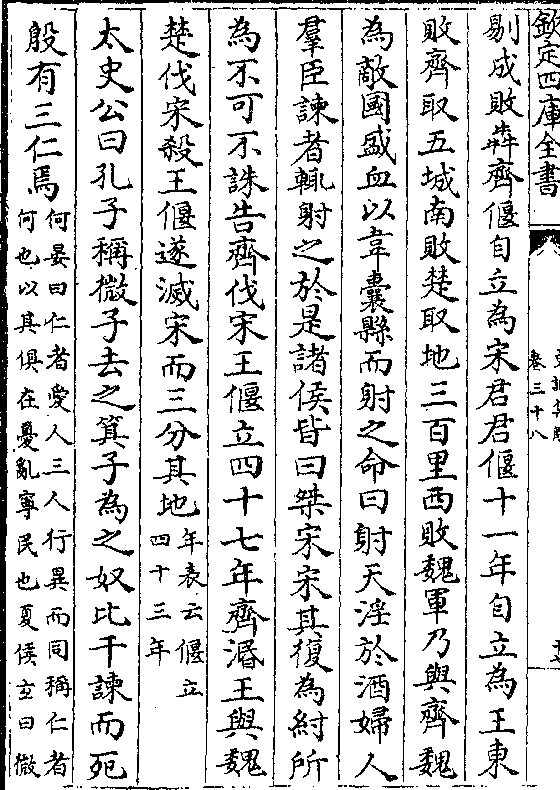 欽定四庫全書
卷三十八
剔成敗犇齊偃自立為宋君君偃十一年自立為王東
敗齊取五城南敗楚取地三百里西敗魏軍乃與齊魏
為敵國盛血以韋囊縣而射之命曰射天淫於酒婦人
羣臣諫者輒射之於是諸侯皆曰桀宋宋其復為紂所
為不可不誅告齊伐宋王偃立四十七年齊湣王與魏
楚伐宋殺王偃遂滅宋而三分其地年表云偃立
四十三年
太史公曰孔子稱微子去之箕子為之奴比干諫而死
殷有三仁焉何晏曰仁者愛人三人行異而同稱仁者
何也以其俱在憂亂寧民也夏侯玄曰微